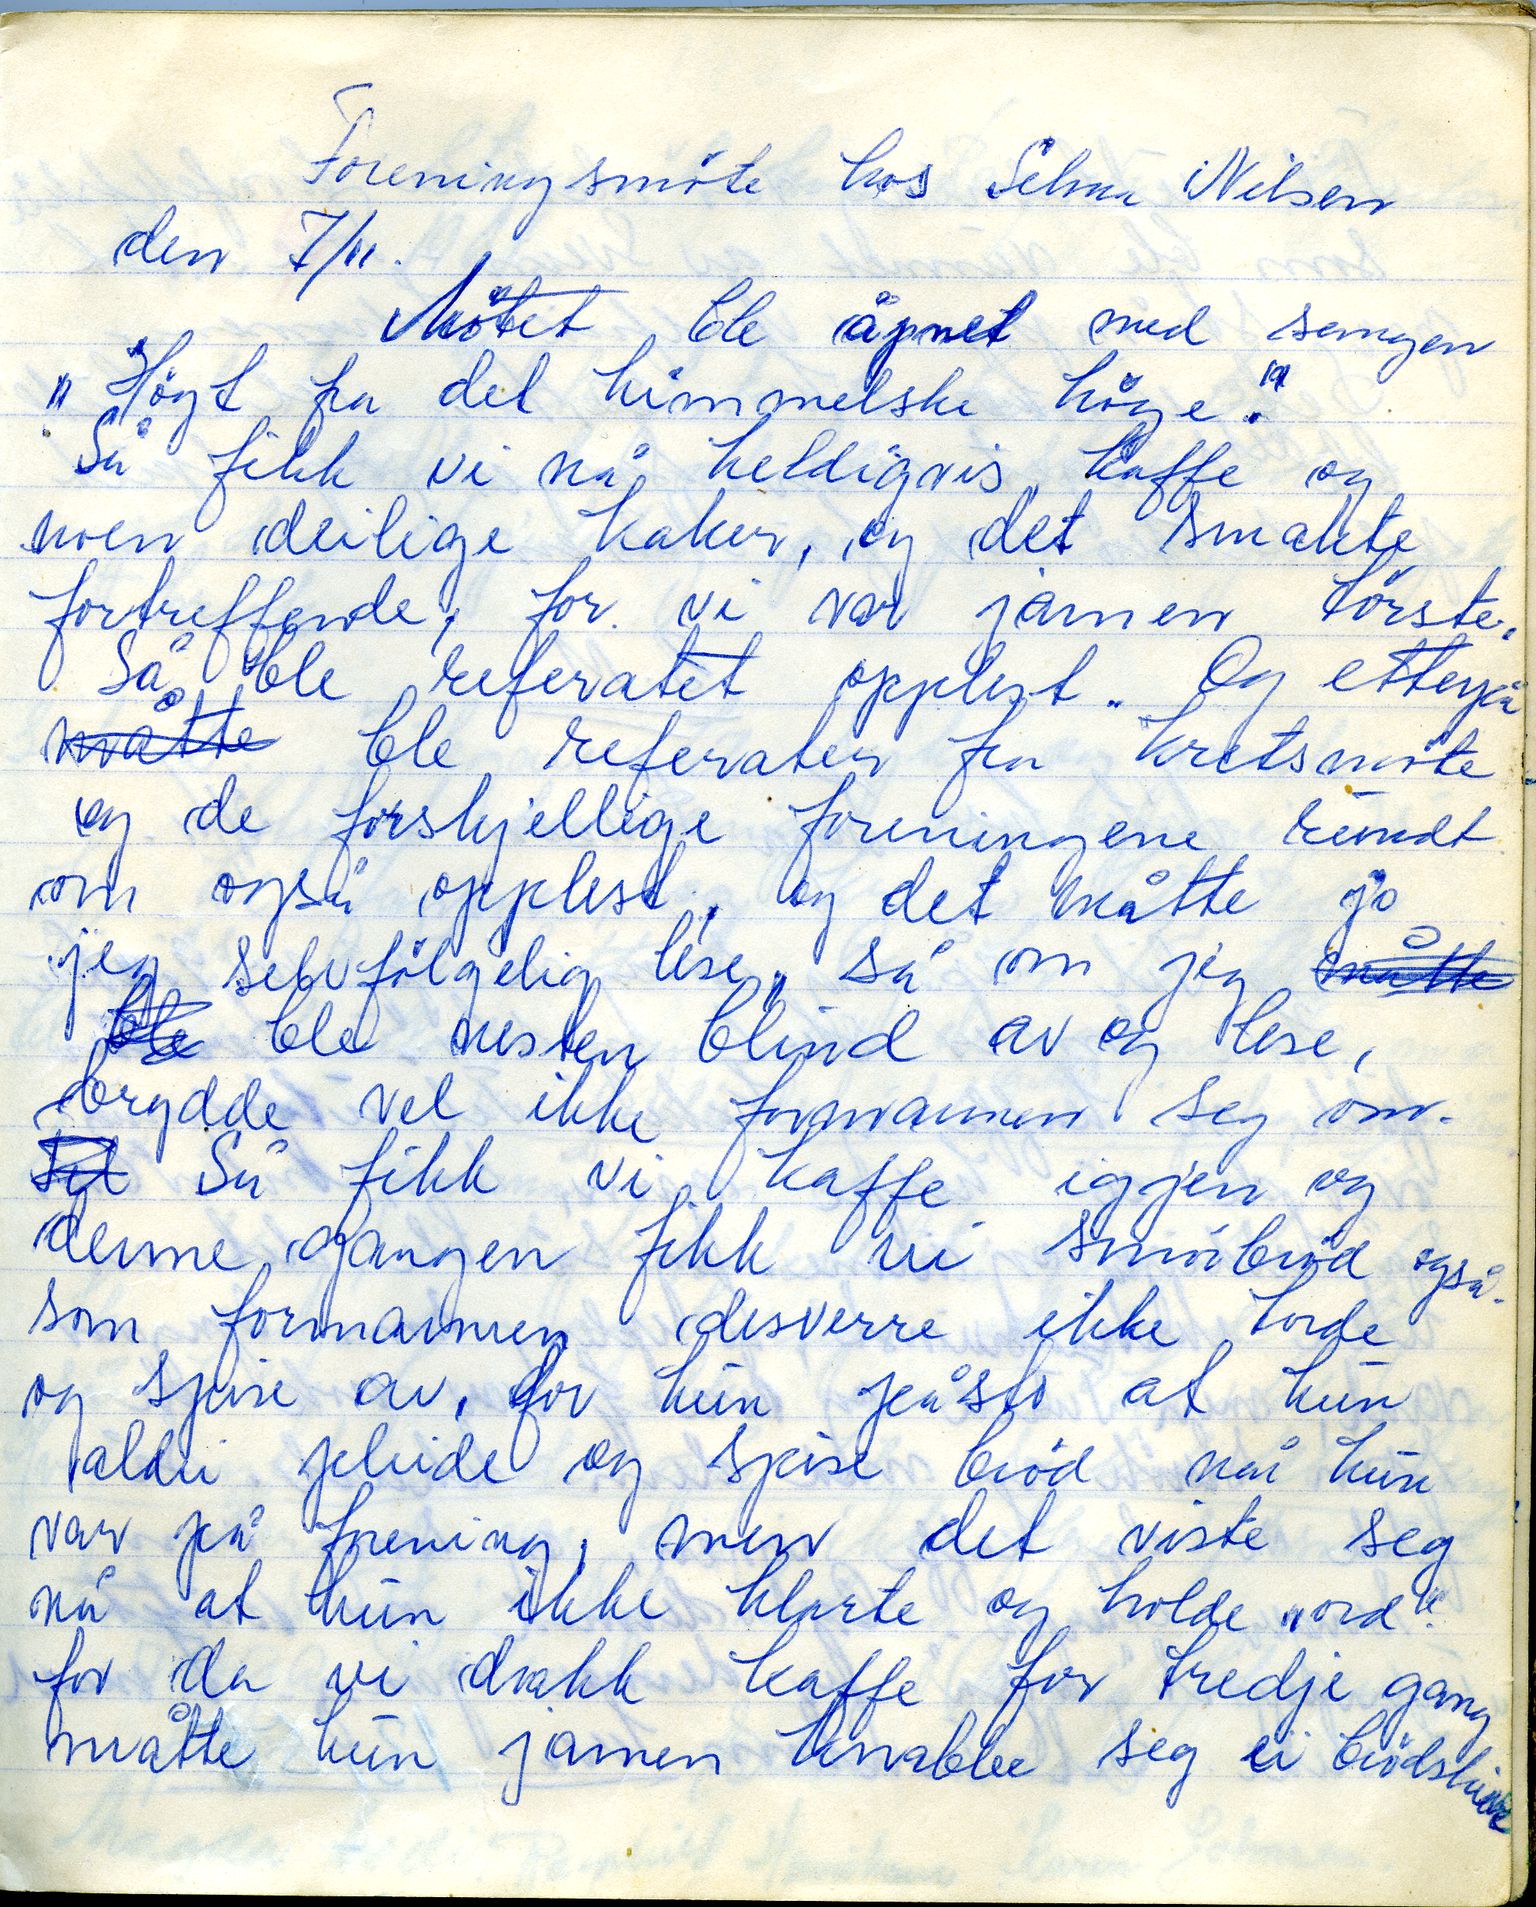 Foreningsmöte hos Selma Nilsen
den 7/11.
Mötet ble åpnet med sangen
„Högt fra det himmelske höge."
Så fikk vi nå heldigvis kaffe og
noen deilige kaker, og det smakte
fortreffende, for vi var jamen törste.
Så ble referatet opplest. Og etterpå
måtte ble referater fra kretsmöte
og de forskjellige foreningene rundt
om også opplest, og det måtte jo
jeg selvfölgelig lese, så om jeg måtte
ble ble nesten blind av og lese,
brydde vel ikke formannen seg om.
Så fikk vi kaffe igjen og
denne gangen fikk vi smörbröd også.
som formannen desverre ikke torde
og spise av, for hun påsto at hun
aldri pleide og spise bröd når hun
var på forening, men det viste seg
nå at hun ikke klarte og holde „ord"
for da vi drakk kaffe for tredje gang
måtte hun jamen knabbe seg ei brödskive